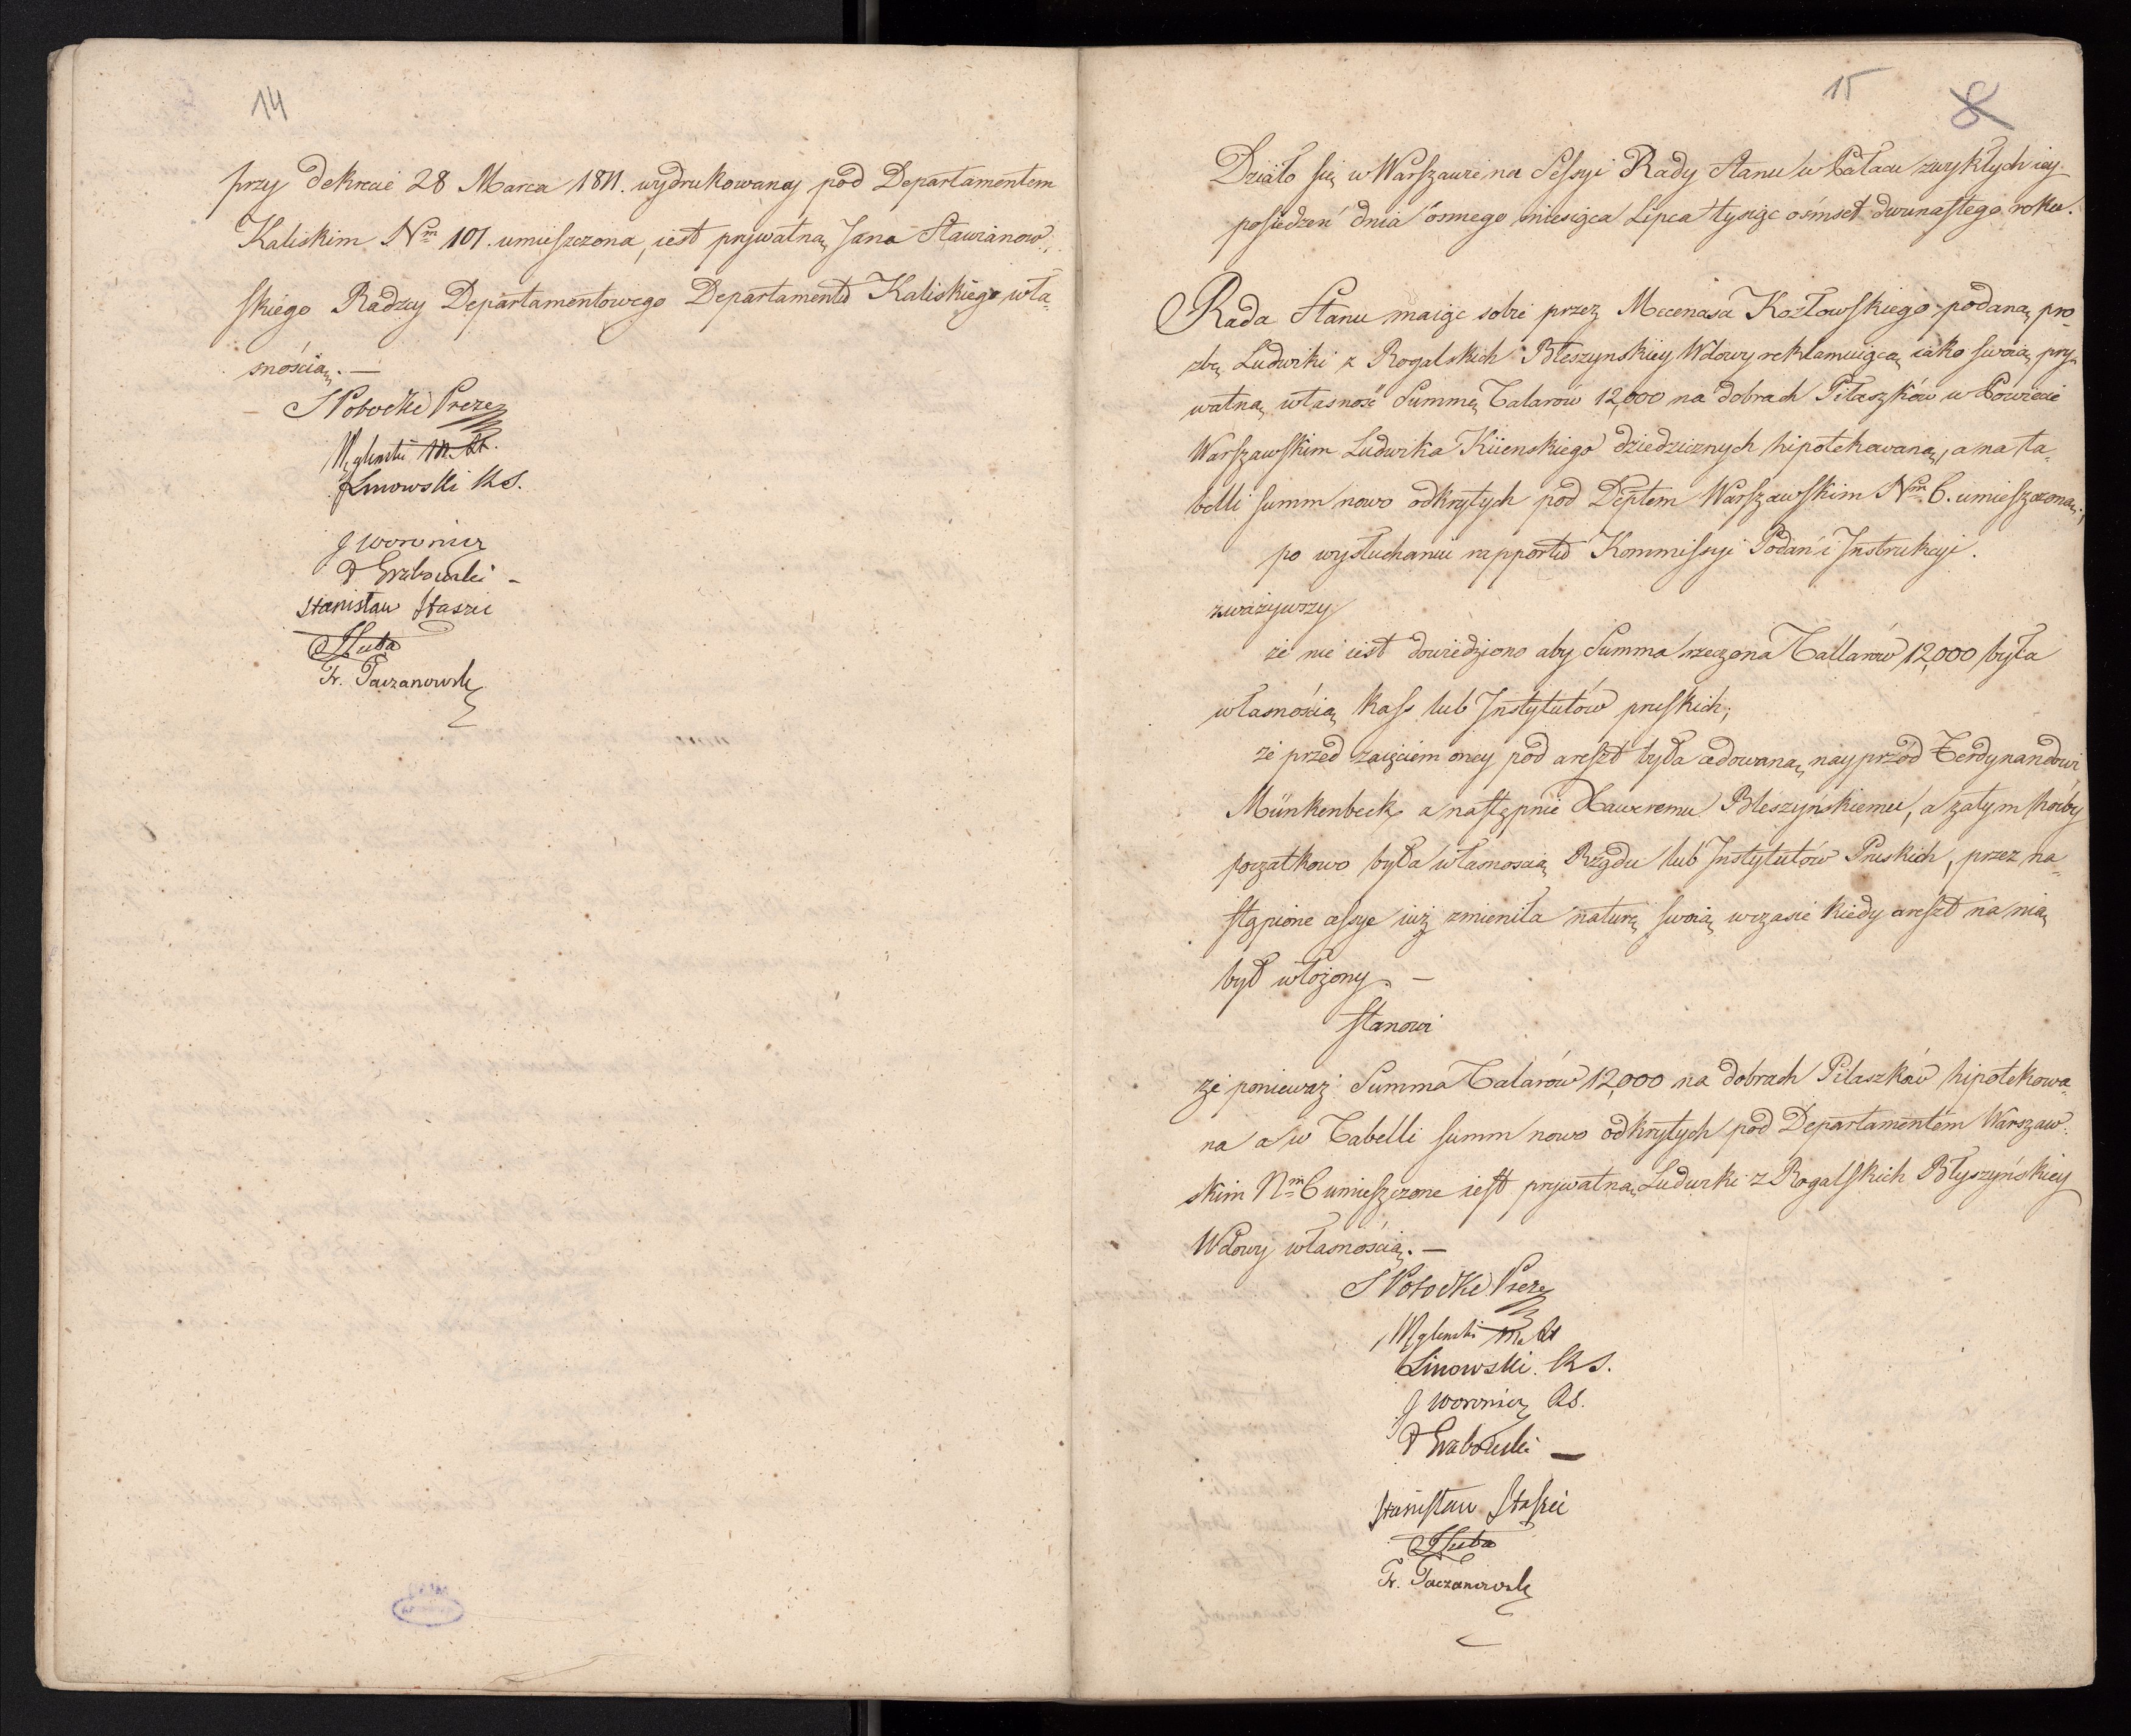 14
przy dekrecie 28 Marca 1811. wydrukowaney pod Departamentem
Kaliskim Nm 101. umieszczona, iest prywatną Jana Stawianow,,
skiego Radzcy Departamentowego Departamentu Kaliskiego wła-
snością. —
S Potocki Prezes
Węgleński M. St.
Linowski RS.
J Woronicz
Grabowski -
Stanisław Staszic
JLuba
Fr. Taczanowski
15
8
Działo się w Warszawie na Sessyi Rady Stanu w Pałacu zwykłych iey
posiedzeń dnia ósmego miesiąca Lipca tysiąc ośmset dwunastego roku.
Rada Stanu maiąc sobie przez Mecenasa Kozłowskiego podaną pro-
zbę Ludwiki z Rogalskich Błeszynskiey Wdowy reklamuiącą iako swoią pry-
watną własność Summę Talarów 12,000 na dobrach Pilaszków w Powiecie
Warszawskim Ludwika Kiienskiego dziedzicznych hipotekowaną, a na ta-
belli summ nowo odkrytych pod Deptem Warszawskim Nm 6. umieszczoną;
po wysłuchaniu rapportu Kommissyi Podań i Instrukcyi.
zważywszy
że nie iest dowiedziono aby Summa rzeczona Tallarów 12,000 była
własnością kass lub Instytutów pruskich;
że przed zaięciem oney pod areszt była cedowaną, nayprzód Ferdynandowi
Münkenbeck, a następnie Xaweremu Błeszyńskiemu, a zatym choćby
początkowo była własnoscią Rządu lub Instytutów Pruskich, przez na-
stąpione cessye iuż zmieniła naturę swoią wczasie kiedy areszt na nią
był włożony. —
stanowi
że ponieważ Summa Talarów 12,000 na dobrach Pilaszków hipotekowa-
na a w Tabelli summ nowo odkrytych pod Departamentem Warszaw-
skim Nm 6 umieszczone iest prywatną Ludwiki z Rogalskich Błyszyńskiey
Wdowy własnością. —
S Potocki Prezes
Węgleński M. St
Linowski. RS.
J Woronicz RS.
Grabowski —
Stanisław Staszic
JLuba
Fr. Taczanowski